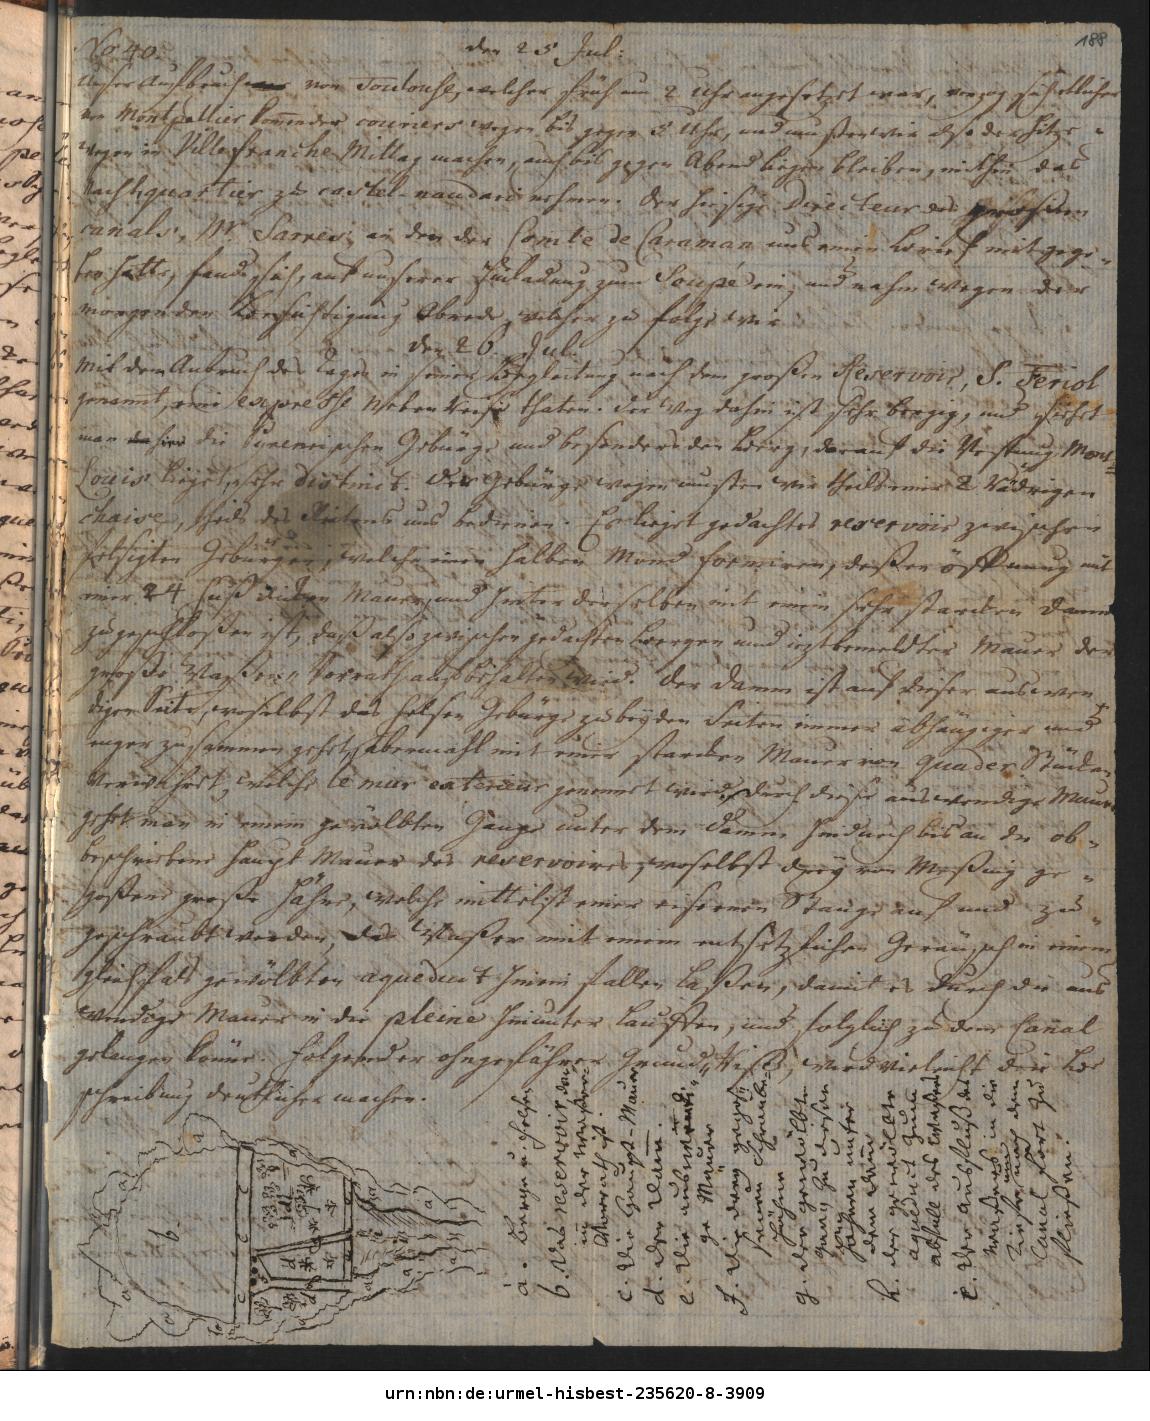 188
No 40. den 25 Jul:
Unser Aufbruch von Toulouse, welcher früh um 2 Uhr angesetzet war, verzog sich etlicher
von Montpellier kommender couriers wegen bis gegen 5 Uhr, und mußten wir also der Hitze
wegen in Villefranche Mittag machen, auch bis gegen Abend liegen bleiben, mithin das
Nachtquartier zu castel-naudari nehmen. Der hiesige Directeur des großen
canals, Mr. Sarres, an den der Comte de Caraman uns einen Brief mit gege-
ben hatte, fande sich, auf unserer Einladung zum Soupé ein, und nahm wegen der
morgenden Besichtigung Abrede, welcher zu folge wir
den 26. Jul.
mit dem Anbruch des Tages in seiner Begleitung nach dem großen Reservoir, S. Feriol
genannt, eine expresse Neben Reise thaten. Der Weg dahin ist sehr bergig, und siehet
man hier die Pyreneischen Gebürge und besonders den Berg, darauf die Vestung Mont
Louis lieget, sehr distinct. Der Gebürge wegen mußten wir theils einer 2 Rädrigen
chaise, theils des Reitens uns bedienen. Es lieget gedachtes reservoir zwischen
felsigten Gebürgen, welche einen halben Mond formiren, deßen öffnung mit
einer 24 Fuß dicken Mauer, und hinter derselben mit einem sehr starcken Damm
zugeschloßen ist, daß also zwischen gedachten Bergen und iezt bemeldter Mauer der
große Waßer Vorrath aufbehalten wird. Der Damm ist auf dieser auswen
digen Seite, woselbst das Felsen Gebürge zu beyden Seiten immer abhängiger und
enger zusammen gehet, abermahl mit einer starcken Mauer von quader Stücken
verwahret, welche le mur exterieur genennet wird. Durch diese auswendige Mauer
gehet man in einem gewölbten Gange unter dem Damm hindurch bis an die ob-
beschriebene Haupt Mauer des reservoires, woselbst drey von Meßing ge-
goßene große Hähne, welche mittelst einer eisernen Stange auf und zu
geschraubt werden, das Waßer mit einem entsetzlichen Geräusch in einen
gleichfals gewölbten aqueduct hinein fallen laßen, damit es durch die aus
wendige Mauer in die pleine hinunter lauffen, und folglich zu dem Canal
gelangen könne. Folgender ohngefährer Grund Riß, wird vieleicht die Be
schreibung deutlicher machen.
a. Berge u. Felsen
b. Das reservoir dar-
in der Waßer-
Vorrath ist.
c. Die Haupt-Mauer
d. Der Dam.
e. Die auswendi-
ge Mauer
f. Die drey gegoß-
Hähne
g. Der gewölbte
Gang zu diesen
Hähnen unter
dem Dam
h. Der gewölbte
aqueduct zum
abfall des Waßers
i. Der Ausfluß des
Waßers in die
Canal fort zu
fließen.